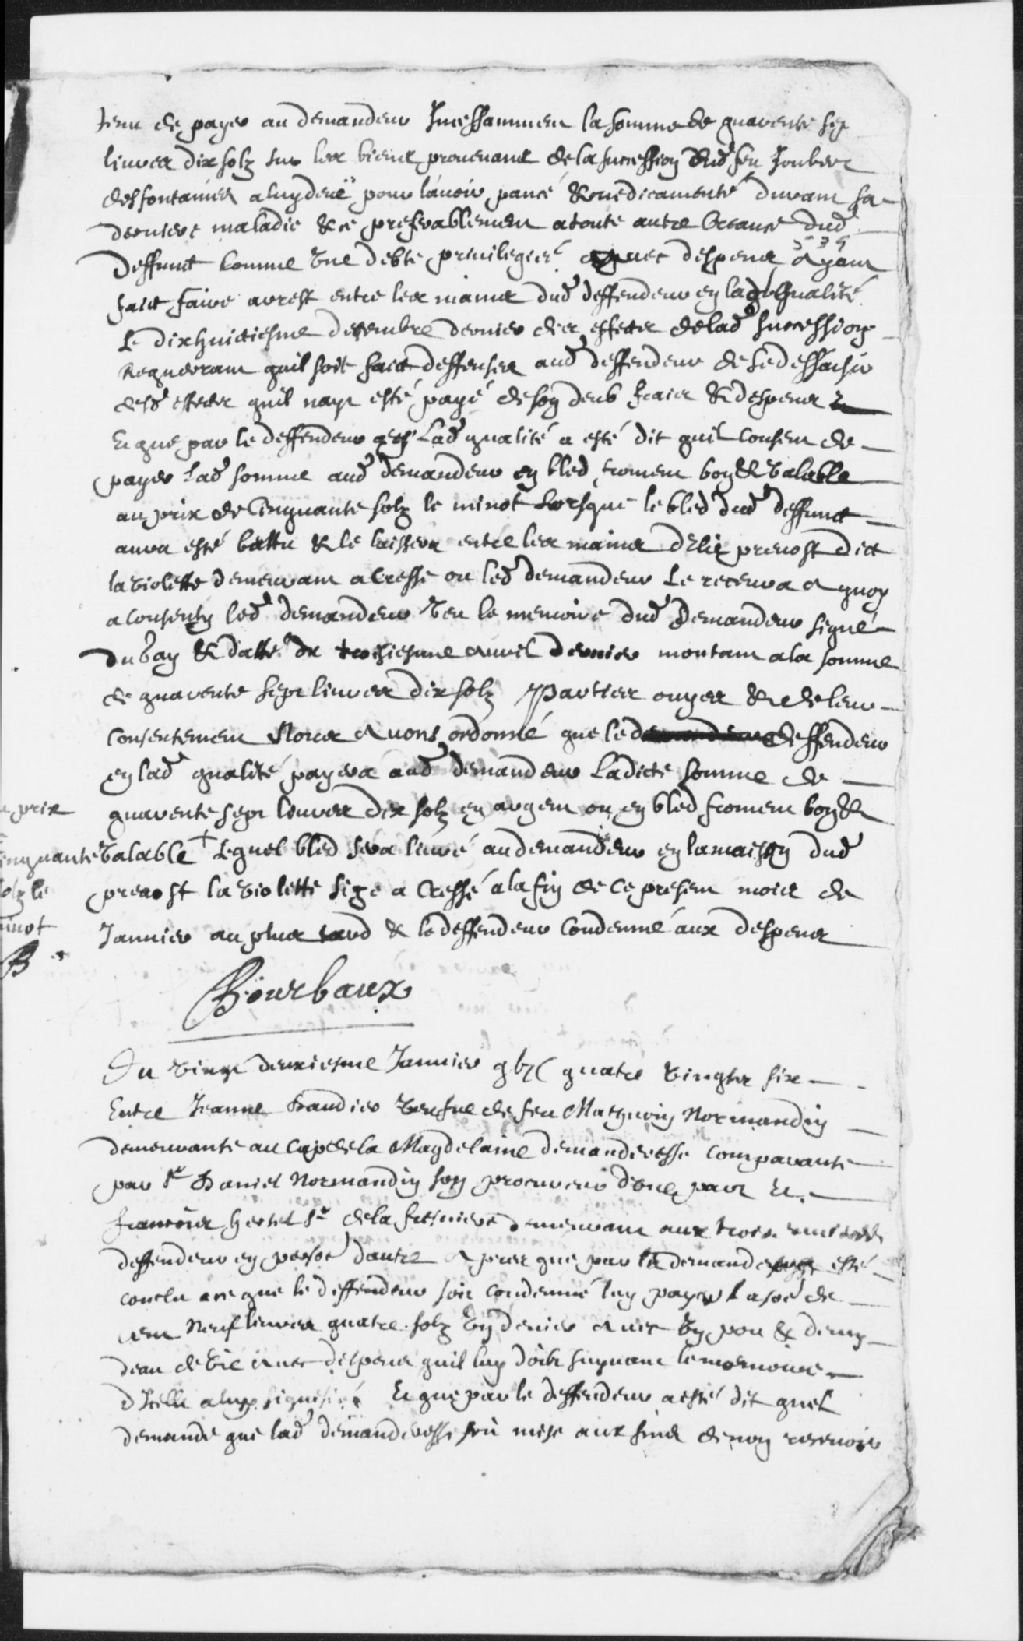 tenu de payer au demandeur Incessamment la somme de quarente sept
livres dix solz sur les biens provenant de la succession dud feu Joubert
desfontaines a luy deue pour l'avoir pancé & medicamenté durant sa
derniere maladie & ce preferablement a toute autre Creance dud
539
deffunct Comme Une debte privilegiée avec despens Ayant
faict faire arrest entre les mains dud deffendeur en lad qualité
Le dixhuictiesme decembre dernier des effectz de lad succession
Requerrant quil soit faict deffenses aud deffendeur de se dessaisir
desd effectz quil nayt esté payé de son deub fraicz & despens
Et que par le deffendeur esd Lad qualité a esté dit quil Consent de
payer Lad somme aud demandeur en bled froment bon & Valable
au prix de Cinquante solz le minot Lorsque le bled dud deffunct
aura esté battu & le laissera entre les mains d'Elie prevost dict
la violette demeurant a Cressé ou led demandeur Le recevra a quoy
a Consenty led demandeur Veu le memoire dud Demandeur signé
dubay & datté du troisiesme avril dernier montant a la somme
de quarente sept livres dix solz Parties ouyes & de leur
Consentement Nous Avons ordonné que le deffendeur
en lad qualité payera aud demandeur Ladicte somme de
quarente sept livres dix solz en argent ou en bled froment bon &
Valable + Lequel bled sera livré au demandeur en la maison dud
au prix
cinquante
solz le
minot
B
prevost la violette size a Cressé a la fin de Ce present mois de
Janvier au plus tard & le deffendeur Condemné aux despens
Bourbaux
Du Vingt deuxiesme Janvier gbjC quatre Vingtz six
Entre Jeanne Vefue de feu Mathurin Normandin
demeurante au Cap de la Magdelaine demanderesse Comparante
par Sr Daniel Normandin son procureur d'une part Et
francois hertel Sr de la fresniere demeurant aux trois
deffendeur en persoe dautre Apres que par la demande esté
conclu a ce que le deffendeur soit Condemné luy payer La soe de
Neuf livres quatre solz Un denier avec Un pou & demy
deau de vie avec despens quil luy doibt suyvant le memoire
dIcelle a luy signiffié Et que par le deffendeur a esté dit quel
demande que lad demanderesse soit mise aux fins de non recevoir